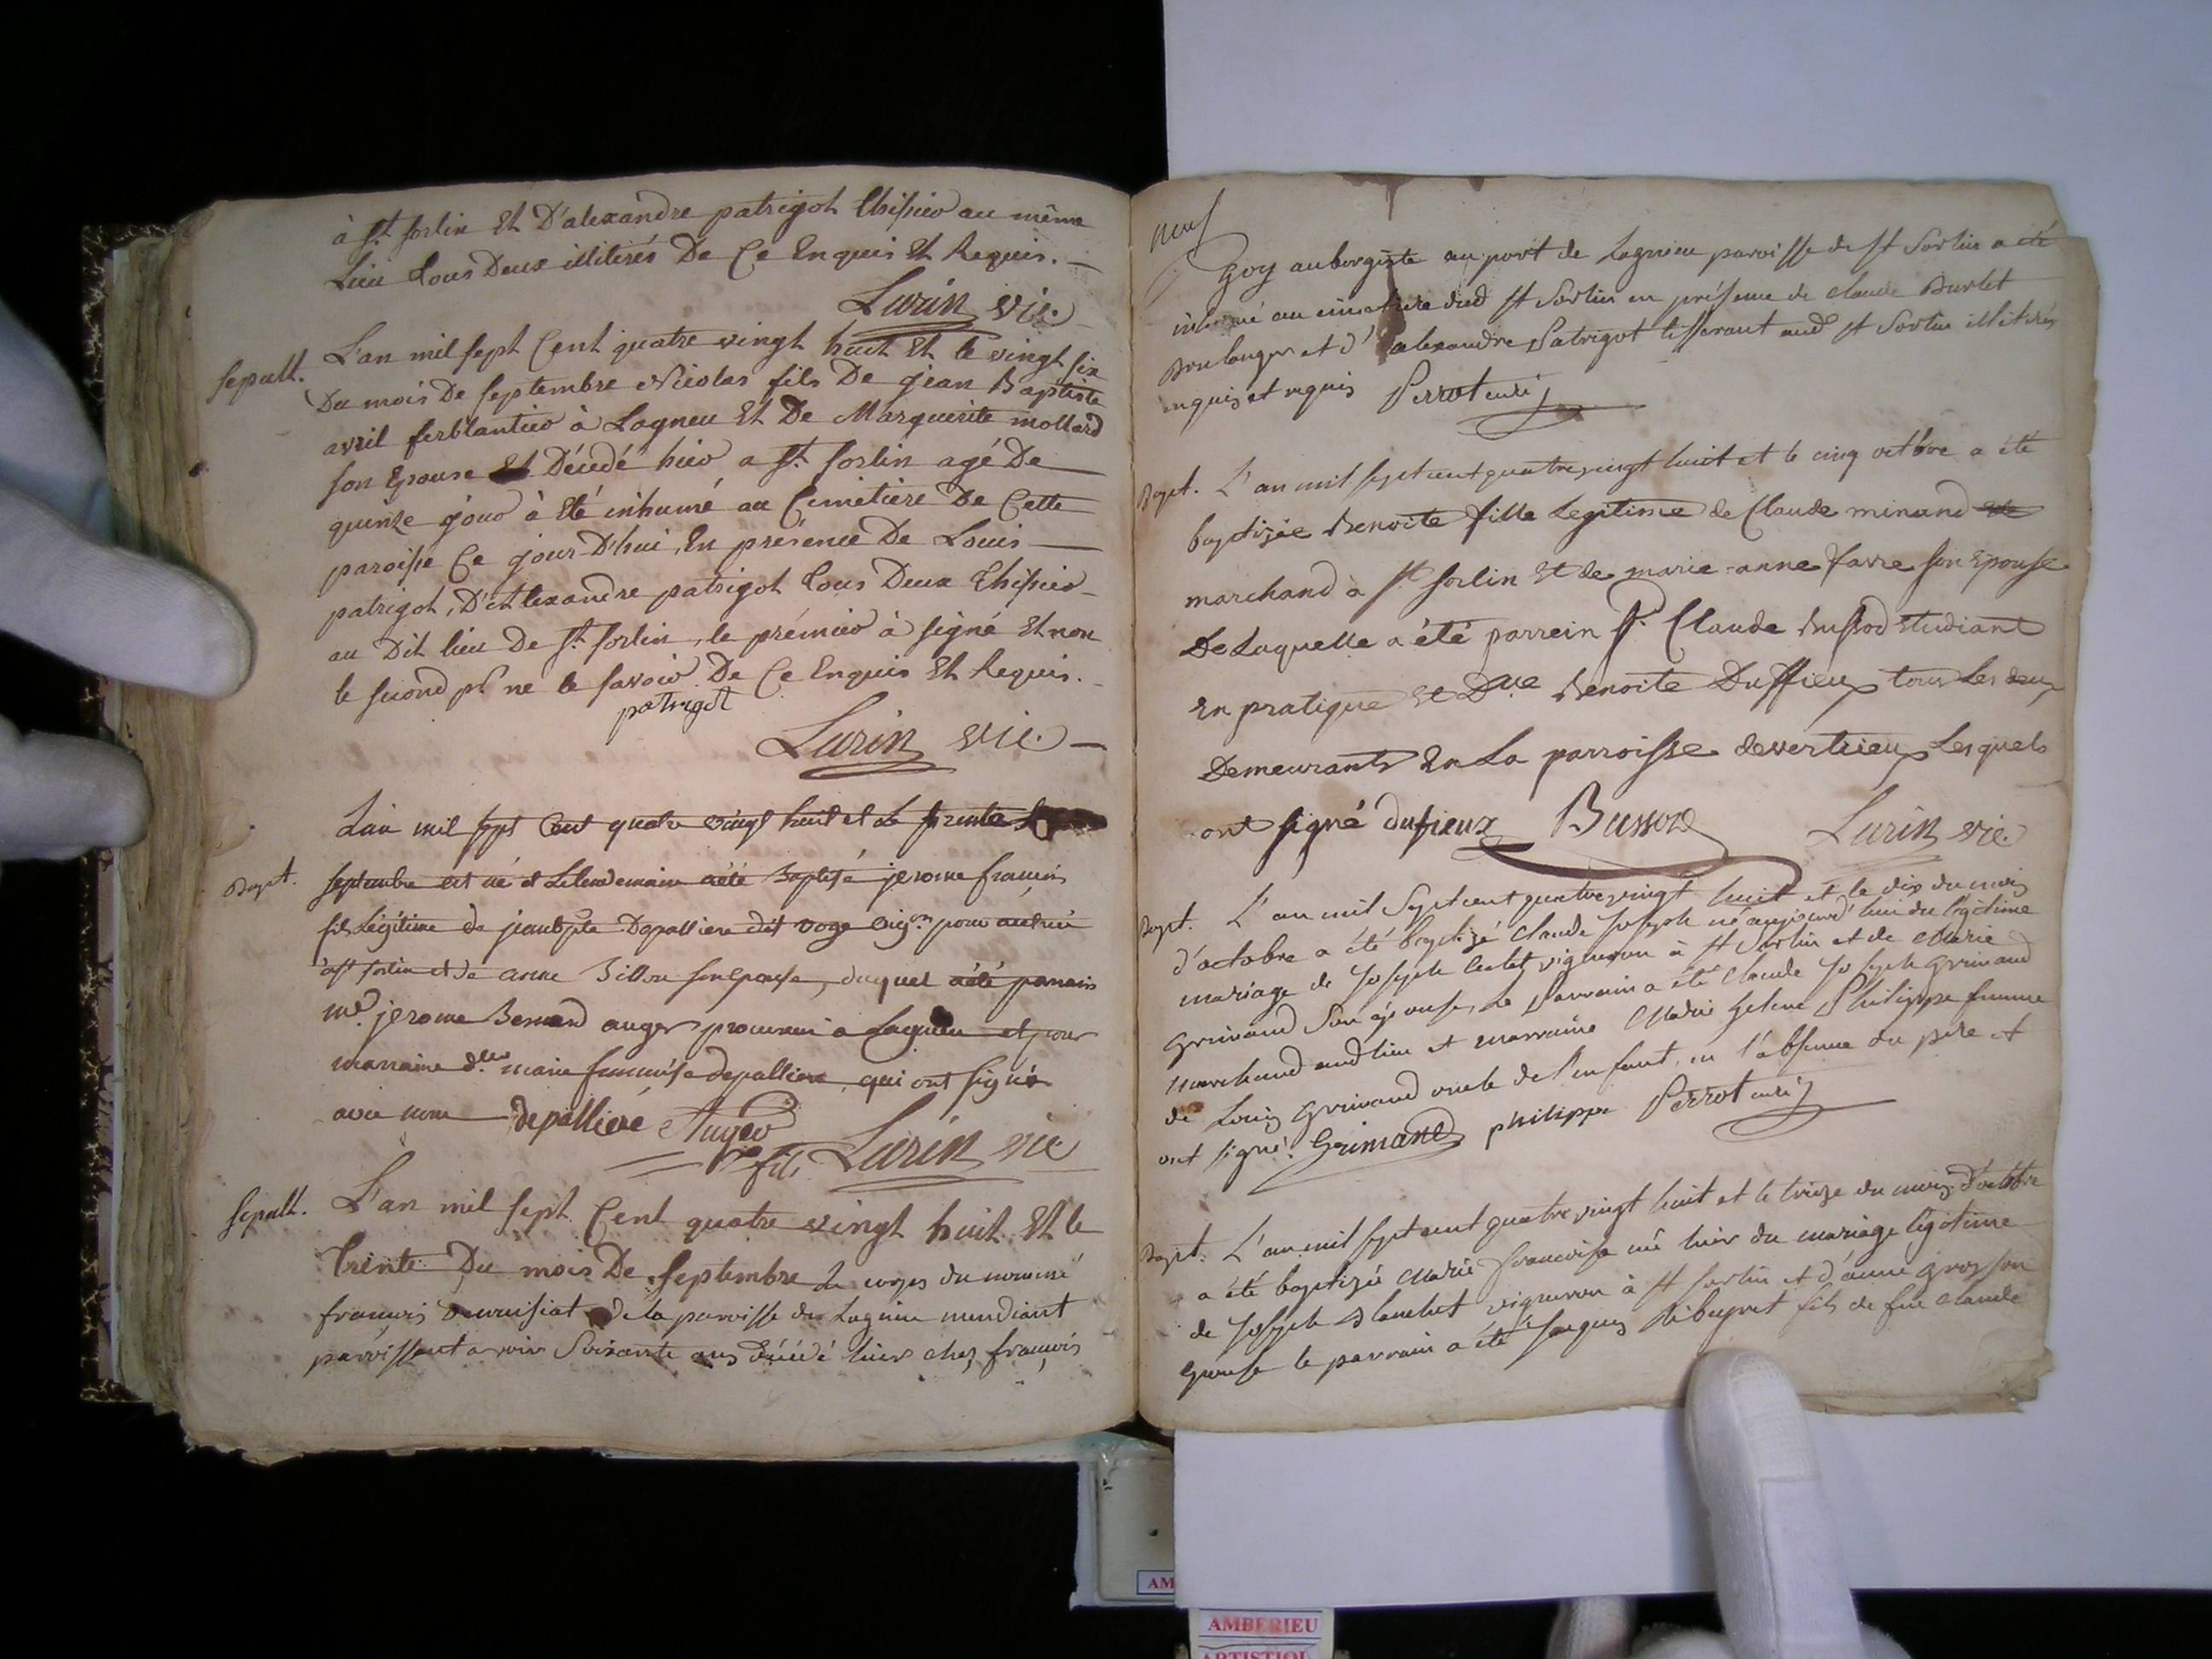 à St. Sorlin Et D'alexandre patrigot thissier au même
Lieu tous Deux illiterés De Ce Enquis Et Requis. —
Lurin vic.
Sepult. L'an mil sept Cent quatre vingt huit Et le vingt six
Du mois De septembre Nicolas fils De jean Baptiste
avril ferblantier à Lagneu Et De Marguerite mollard
son Epouse Décédé hier a St. Sorlin agé De
quinze jour à Eté inhumé au Cimetiere De Cette
paroisse Ce jour D'hui, En présence De Louis
patrigot, D'Alexandre patrigot tous Deux thissier
au Dit lieu De St. Sorlin, le prémier à signé Et non
le second pr ne le savoir De Ce Enquis Et Requis.
patrigot
Lurin vic. —
L'an mil sept Cent quatre vingt huit et Le trente
Bapt. septembre est né et Lelendemain a été Baptisé jerome francois
fils Légitime de jean bpte Depalliere dit
à St Sorlin et de anne Billon son Epouse, duquel a été parrain
me. jerome Bernard auger procureur a Lagnieu et pour
marraine dlle. marie françoise depalliere, qui ont signé
avec nous depalliere Auger
fils Lurin vic
Sepult. L'an mil sept Cent quatre vingt huit Et le
trente Du mois De Septembre Le corps du nommé
francois de la paroisse de Lagnieu mendiant
parroissant avoir Soixante ans décédé hier chez francois
neuf
Goy aubergiste au port de Lagnieu paroisse de St Sorlin a été
inhumé au cimetiere dud St Sorlin en présence de claude Burlet
Boulanger et d'alexandre Patrigot tisserant aud St Sorlin illitérés
enquis et requis Perrot curé
Bapt. L'an mil sept cent quatre vingt huit et le cinq octbre a été
baptizée Benoite fille Legitime de Claude minand
marchand a St. Sorlin Et de marie-anne favre son Epouse
De Laquelle a été parrein Sr. Claude Bussod Etudiant
En pratique Et Dlle Benoite Duffieux tous Les deux
Demeurants En La parroisse de vertrieux Lesquels
ont signé dufieux Bussod Lurin vic.
Bapt. L'an mil Sept cent quatre vingt huit et le dix du mois
d'octobre a été baptizé Claude Joseph né aujourd'hui du légitime
mariage de Joseph vigneron à St Sorlin et de Marie
Grimand Son épouse, Le Parrain a été Claude Joseph Grimand
marchand aud lieu et marraine Marie Helene Philippe femme
de Louis Grimand oncle de l'enfant, en l'absence du père et
ont signé. Grimand philippe Perrot curé
Bapt. L'an mil sept cent quatre vingt huit et le treize du mois d'octbre
a été baptizée Marie Francoise née hier du mariage légitime
de Joseph Blanchet vigneron à St Sorlin et d'anne Gros son
épouse le parrain a été Jacques fils de feu Claude
AM
AMBERIEU
ARTISTIQU